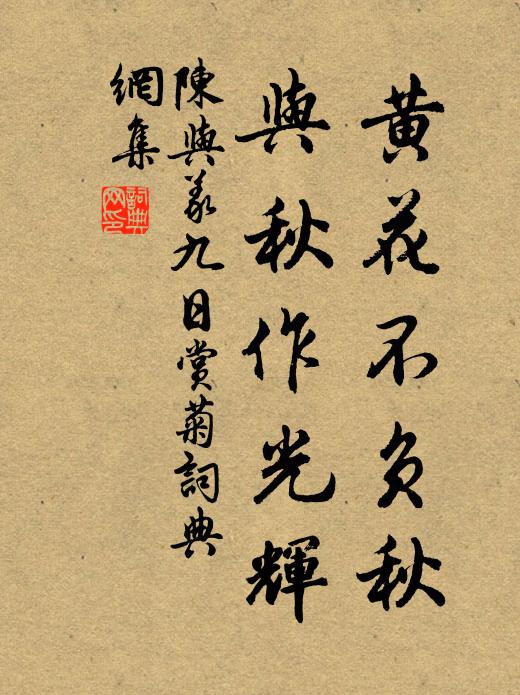 黄花不负秋
與秋作光輝
陳與義九日賞菊詞典
網集
詞典網印